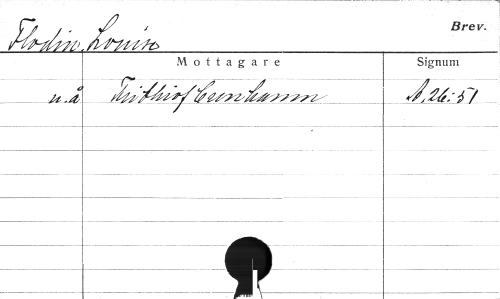 Flodin, Louise
Brev.
Mottagare Signum
u.å Frithiof Cronhamn A, 26: 51